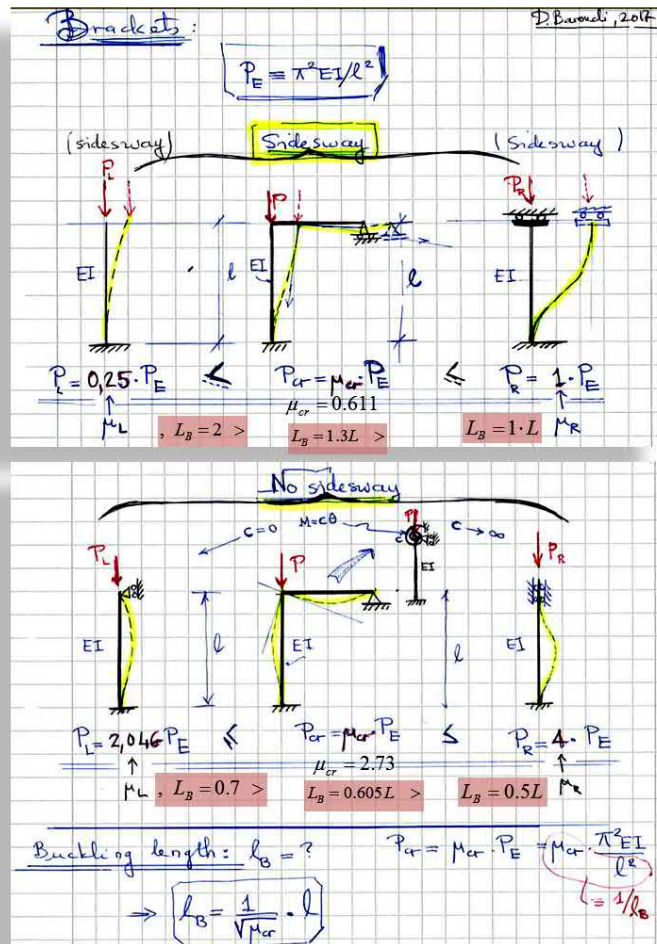 Brackets: D. Baroudi, 2017
P_E ≡ π²EI/l²
(sidesway) Sidesway (Sidesway)
P_L P P_R
EI l EI l EI
P_L = 0,25·P_E ≤ P_cr = μ_cr·P_E ≤ P_R = 1·P_E
μ_cr = 0.611
↑ μ_L , L_B = 2 > L_B = 1.3L > L_B = 1·L ↑ μ_R
No sidesway
c=0 M=cθ P c→∞
c
P_L P EI P_R
EI l EI l EI
P_L = 2,046 P_E ≤ P_cr = μ_cr·P_E ≤ P_R = 4·P_E
μ_cr = 2.73
↑ μ_L , L_B = 0.7 > L_B = 0.605L > L_B = 0.5L ↑ μ_R
Buckling length: l_B = ? P_cr = μ_cr·P_E = μ_cr·π²EI/l²
≡ 1/l_B
⇒ l_B = 1/√μ_cr · l